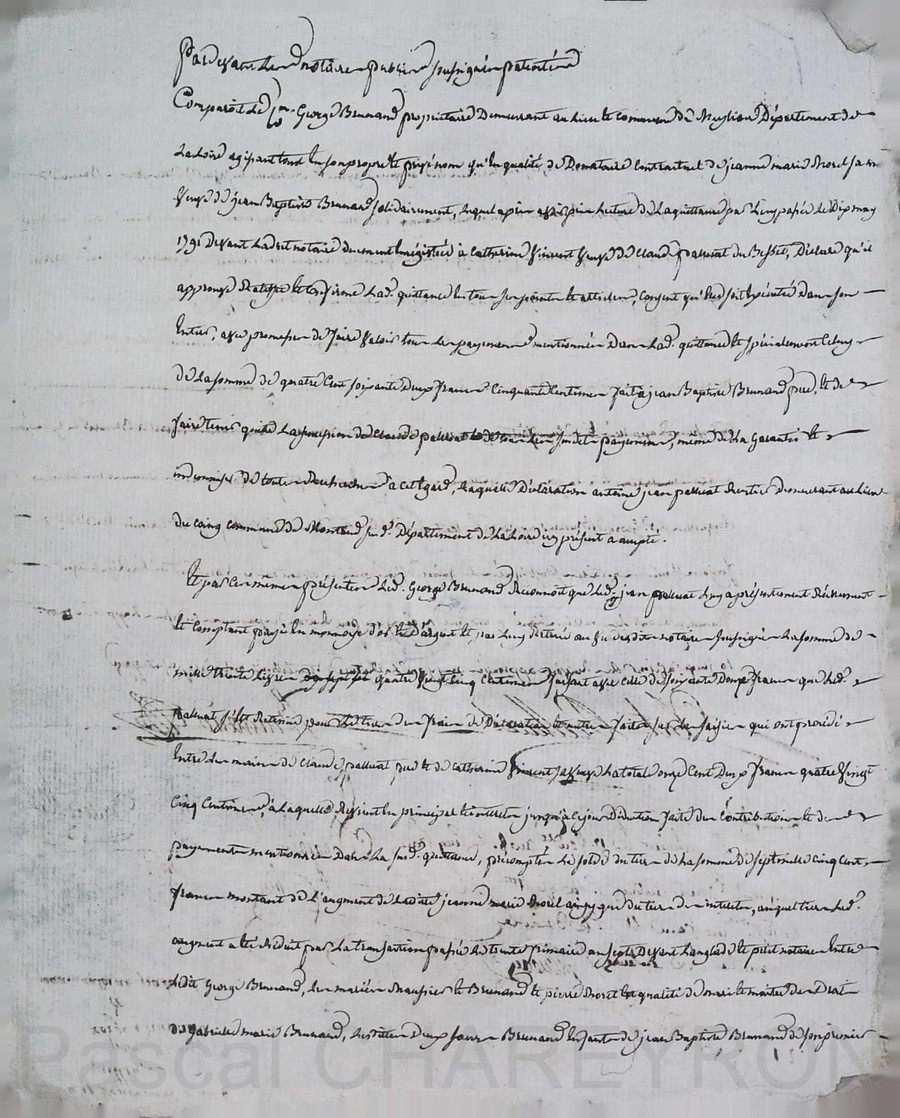 Pardevant Le notaire public soussigné patenté
Comparoit Le Cen. George Brunand proprietaire Demeurant au lieu et commune de Département de
La Loire agissant tant en son propre et privé nom qu'en qualité de Donataire Contractuel de jeanne marie Morel sa
veuve de jean Baptiste Brunand solidairement, Lequel après avoir pris lecture de La quittance par Lui passée Le Dix may
1791 devant Ledit notaire duement Enrégistrée à Catherine Vincent veuve de Claude palluat du Besset, Déclare qu'il
approuve Ratiffie et Confirme Lad. quittance En tous ses points et articles, consent qu'elle soit Exécutée Dans son
Entier, avec promesse de faire valoir tous Les payements mentionnés Dans Lad. quittance et spécialement Celuy
de La somme de quatre Cent soixante Deux francs Cinquante Centimes fait à jean Baptiste Brunand , et de
faire tenir quitte La succession de Claude palluat de tous Les susdits payements, même de La Garantir et
indemniser de toutes Recherches à cet Egard, Laquelle Déclaration antoine jean palluat Rentier demeurant au lieu
du Coing commune de Montaud susd. Département de La Loire icy présent a accepté.
Et par Ces mêmes présentes Led. George Brunand Reconnoit que Led. jean palluat Luy a présentement Réellement
et Comptant payé En monnoye d'or et d'argent et par Luy Retiré au vu dudit notaire soussigné La somme de
mille trente Livres quatre vingt Cinq Centimes faisant avec celle de soixante Douze francs que Led.
palluat s'est Retenue pour Le tiers des frais de et autres faits sur les saisies qui ont procédé
Entre Les mains de Claude palluat et de Catherine Vincent sa veuve La total onze Cent Deux francs quatre vingt
Cinq Centimes, à Laquelle Revient En principal et intérêts jusqu'à Ce jour Déduction faite des Contributions et des
payements mentionnés Dans La susd. quittance, précomptés Le solde du tiers de La somme de sept mille Cinq Cent
francs montant de L'augment de Ladite jeanne marie Morel ainsy que du tiers des intérêts, auquel tiers Led.
augment a été Réduit par La transaction passée Le trente frimaire an sept Devant Langlade et petit notaires Entre
Ledit George Brunand, Les mariés et Brunand et pierre Morel En qualité de mari et maitre des Droits
de Gabrielle marie Brunand, Lesdites Deux sœurs Brunand Enfants de jean Baptiste Brunand de son premier
Pascal CHAREYRON